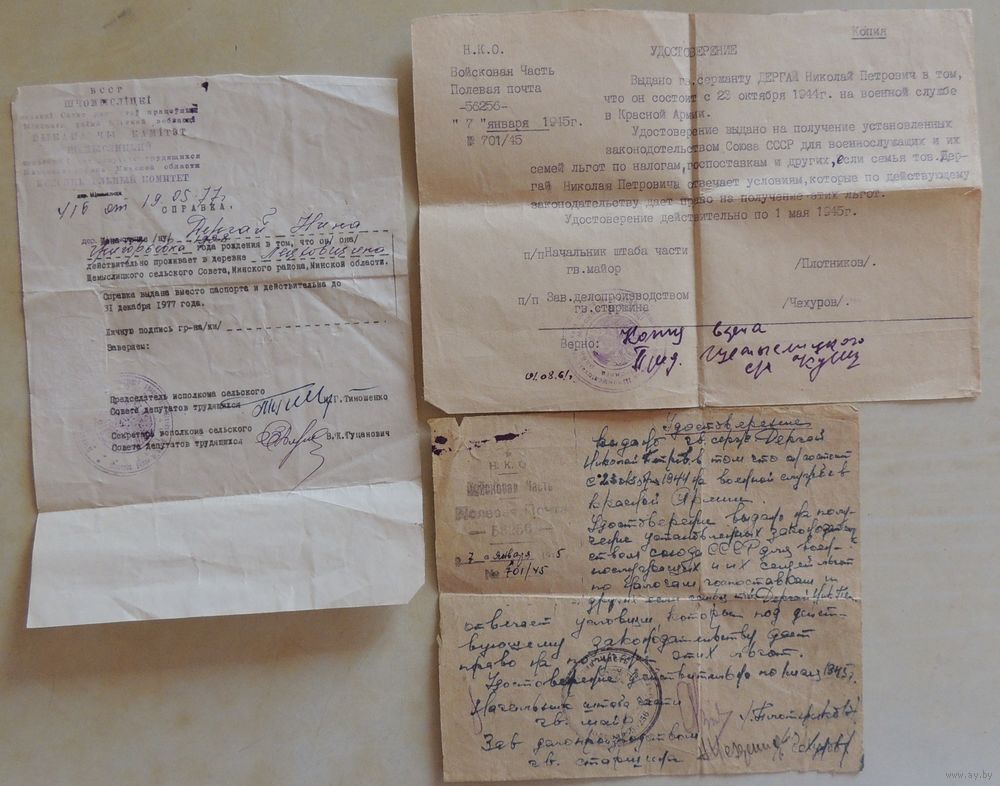 БССР
ШЧОМЫСЛІЦКІ
КАМІТЭТ
ЩЕМЫСЛИЦКИЙ
КОМИТЕТ
416 от 19.05.77 г.
СПРАВКА.
Дергай Нина
года рождения в том, что он /она/
действительно проживает в деревне
Щемыслицкого сельского Совета, Минского района, Минской области.
Справка выдана вместо паспорта и действительна до
31 декабря 1977 года.
Личную подпись гр-на/ки/
Заверяем:
Председатель исполкома сельского
Совета депутатов трудящихся Г.Тимошенко
Секретарь исполкома сельского
Совета депутатов трудящихся В.К.Гуцанович
Копия
Н.К.О.
Войсковая Часть
Полевая почта
-56256-
"7" января 1945г.
№ 701/45
УДОСТОВЕРЕНИЕ
Выдано гв.сержанту ДЕРГАЙ Николай Петрович в том,
что он состоит с 23 октября 1944г. на военной службе
в Красной Армии.
Удостоверение выдано на получение установленных
законодательством Союза ССР для военнослужащих и их
семей льгот по налогам, госпоставкам и других, если семья тов.Дер-
гай Николая Петровича отвечает условиям, которые по действующему
законодательству дает право на получение этих льгот.
Удостоверение действительно по 1 мая 1945г.
п/п Начальник штаба части
гв.майор /Плотников/.
п/п Зав.делопроизводством
гв.старшина /Чехуров/.
Верно: Копия верна
Пред. Щемыслицкого
с/с
Удостоверение
Выдано гв. серж. Дергай
Николай Петров. в том что он состоит
с 23 октября 1944 на военной службе в
Красной Армии.
Удостоверение выдано на полу-
чение установленных законодатель-
ством союза СССР для воен-
нослужащих и их семей льгот
по налогам госпоставкам и
Н.К.О
Войсковая Часть
Полевая Почта
— 56256 —
"7" января 1945
№ 701/45
отвечает условиям, которые под дейст-
вующему законодательству дает
право на получения этих льгот.
Удостоверение действительно по 1 мая 1945г.
Начальник штаба части
гв. майор /Плотников/
Зав делопроизводством
гв. старшина
www.ay.by